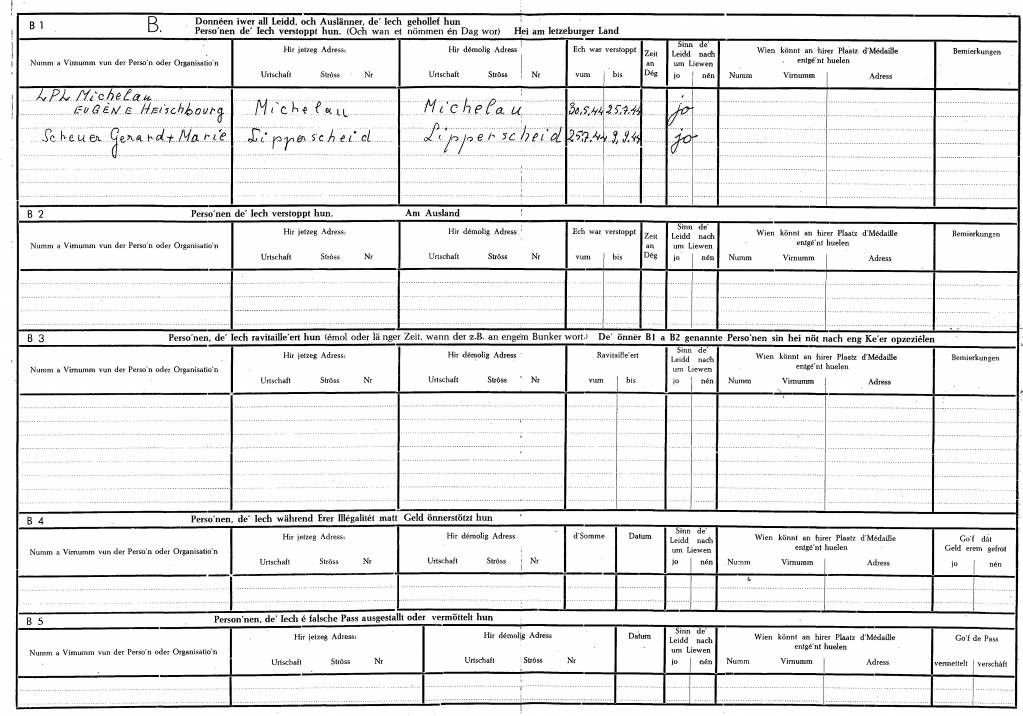 B 1 B. Donnéen iwer all Leidd, och Auslänner, de' Iech gehollef hun
Perso'nen de' Iech verstoppt hun. (Och wan et nömmen én Dag wor) Hei am letzeburger Land
Numm a Virnumm vun der Perso'n oder Organisatio'n
Hir jetzeg Adress:
Urtschaft Ströss Nr
Hir démolig Adress
Urtschaft Ströss Nr
Ech war verstoppt
vum bis
Zeit
an
Dég
Sinn de'
Leidd nach
um Liewen
jo nén
Wien könnt an hirer Plaatz d'Médaille
entgé'nt huelen
Numm Virnumm Adress
Bemierkungen
LPL Michelau
EUGÈNE Heischbourg Michelau Michelau 30.5.44 25.7.44 jo
Scheuer Gerard + Marie Lipperscheid Lipperscheid 25.7.44 9.9.44 jo
B 2 Perso'nen de' Iech verstoppt hun. Am Ausland
Numm a Virnumm vun der Perso'n oder Organisatio'n
Hir jetzeg Adress:
Urtschaft Ströss Nr
Hir démolig Adress
Urtschaft Ströss Nr
Ech war verstoppt
vum bis
Zeit
an
Dég
Sinn de'
Leidd nach
um Liewen
jo nén
Wien könnt an hirer Plaatz d'Médaille
entgé'nt huelen
Numm Virnumm Adress
Bemierkungen
B 3 Perso'nen, de' Iech ravitaille'ert hun (émol oder lä nger Zeit, wann der z.B. an engem Bunker wort.) De' önner B1 a B2 genannte Perso'nen sin hei nöt nach eng Ke'er opzeziélen
Numm a Virnumm vun der Perso'n oder Organisatio'n
Hir jetzeg Adress:
Urtschaft Ströss Nr
Hir démolig Adress
Urtschaft Ströss Nr
Ravitaille'ert
vum bis
Sinn de'
Leidd nach
um Liewen
jo nén
Wien könnt an hirer Plaatz d'Médaille
entgé'nt huelen
Numm Virnumm Adress
Bemierkungen
B 4 Perso'nen, de' Iech während Erer Illégalitét matt Geld önnerstötzt hun
Numm a Virnumm vun der Perso'n oder Organisatio'n
Hir jetzeg Adress:
Urtschaft Ströss Nr
Hir démolig Adress
Urtschaft Ströss Nr
d'Somme
Datum
Sinn de'
Leidd nach
um Liewen
jo nén
Wien könnt an hirer Plaatz d'Médaille
entgé'nt huelen
Numm Virnumm Adress
Go'f dát
Geld erem gefrot
jo nén
B 5 Person'nen, de' Iech é falsche Pass ausgestallt oder vermöttelt hun
Numm a Virnumm vun der Perso'n oder Organisatio'n
Hir jetzeg Adress:
Urtschaft Ströss Nr
Hir démolig Adress
Urtschaft Ströss Nr
Datum
Sinn de'
Leidd nach
um Liewen
jo nén
Wien könnt an hirer Plaatz d'Médaille
entgé'nt huelen
Numm Virnumm Adress
Go'f de Pass
vermettelt verscháft